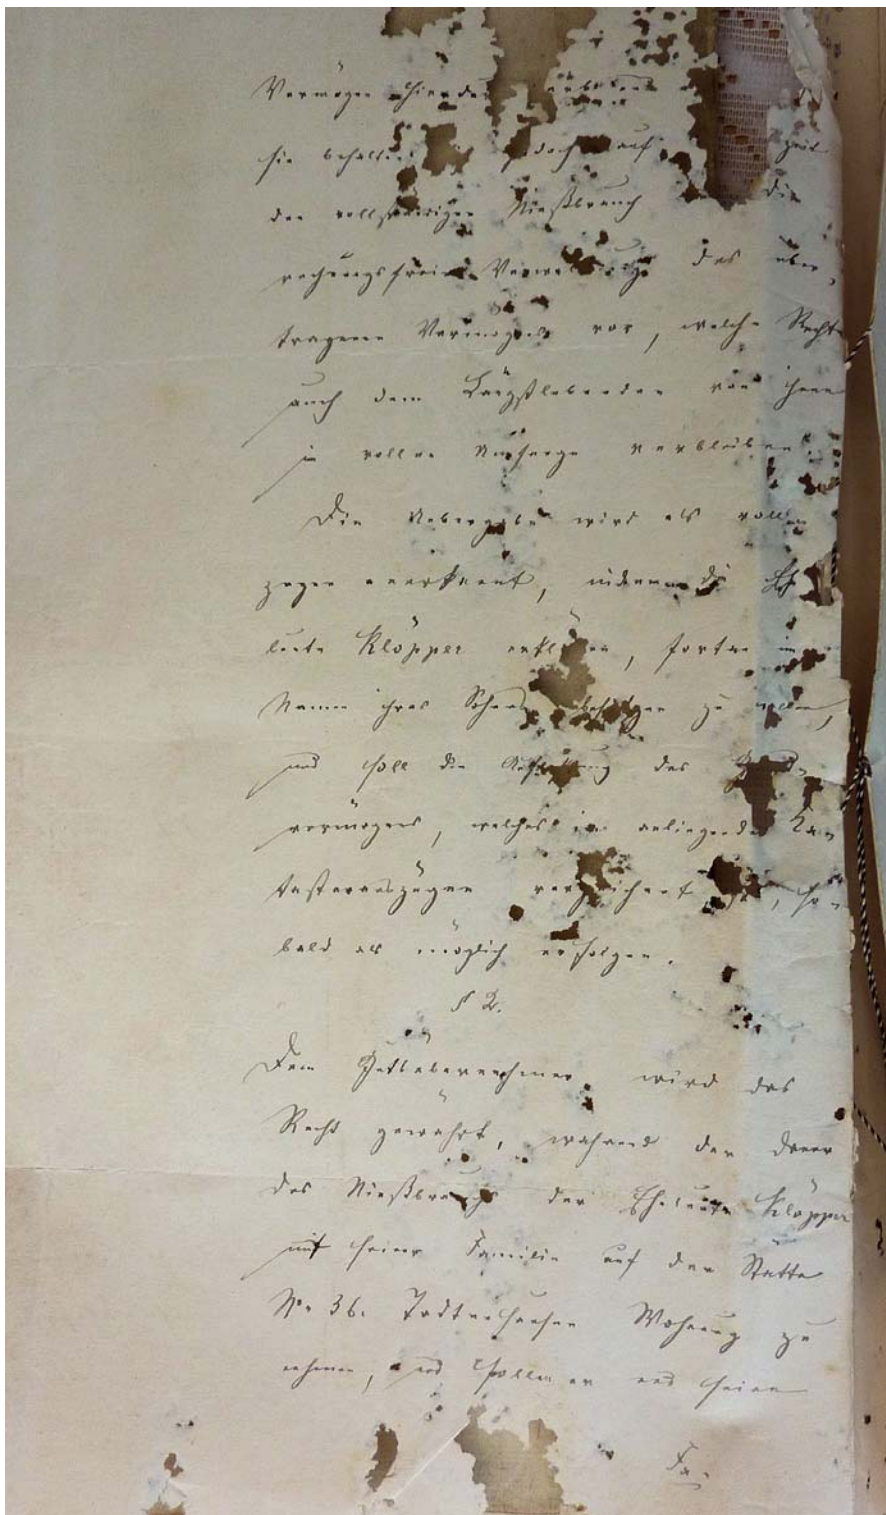 Vermögen hierdurch
sie behalten jedoch auf zeit
den vollständigen Nießbrauch die
rechnungsfreie Verwaltung des über-
tragenen Vermögens vor, welche Rechte
auch dem Längstlebenden von ihnen
in vollem Umfange verbleiben.
Die Uebergabe wird als voll-
zogen anerkannt, indem die Ehe-
leute Klöpper erklären, fortan im
Namen ihres Sohnes besitzen zu wollen,
und soll die Auflassung des Grund-
vermögens, welches in anliegenden Ka-
tasterauszügen verzeichnet ist, so-
bald als möglich erfolgen.
§ 2.
Dem Gutsübernehmer wird das
Recht gewährt, während der Dauer
des Nießbrauchs der Eheleute Klöpper
mit seiner Familie auf der Stätte
No 36. Todtenhausen Wohnung zu
nehmen, und sollen er und seine
Fa-